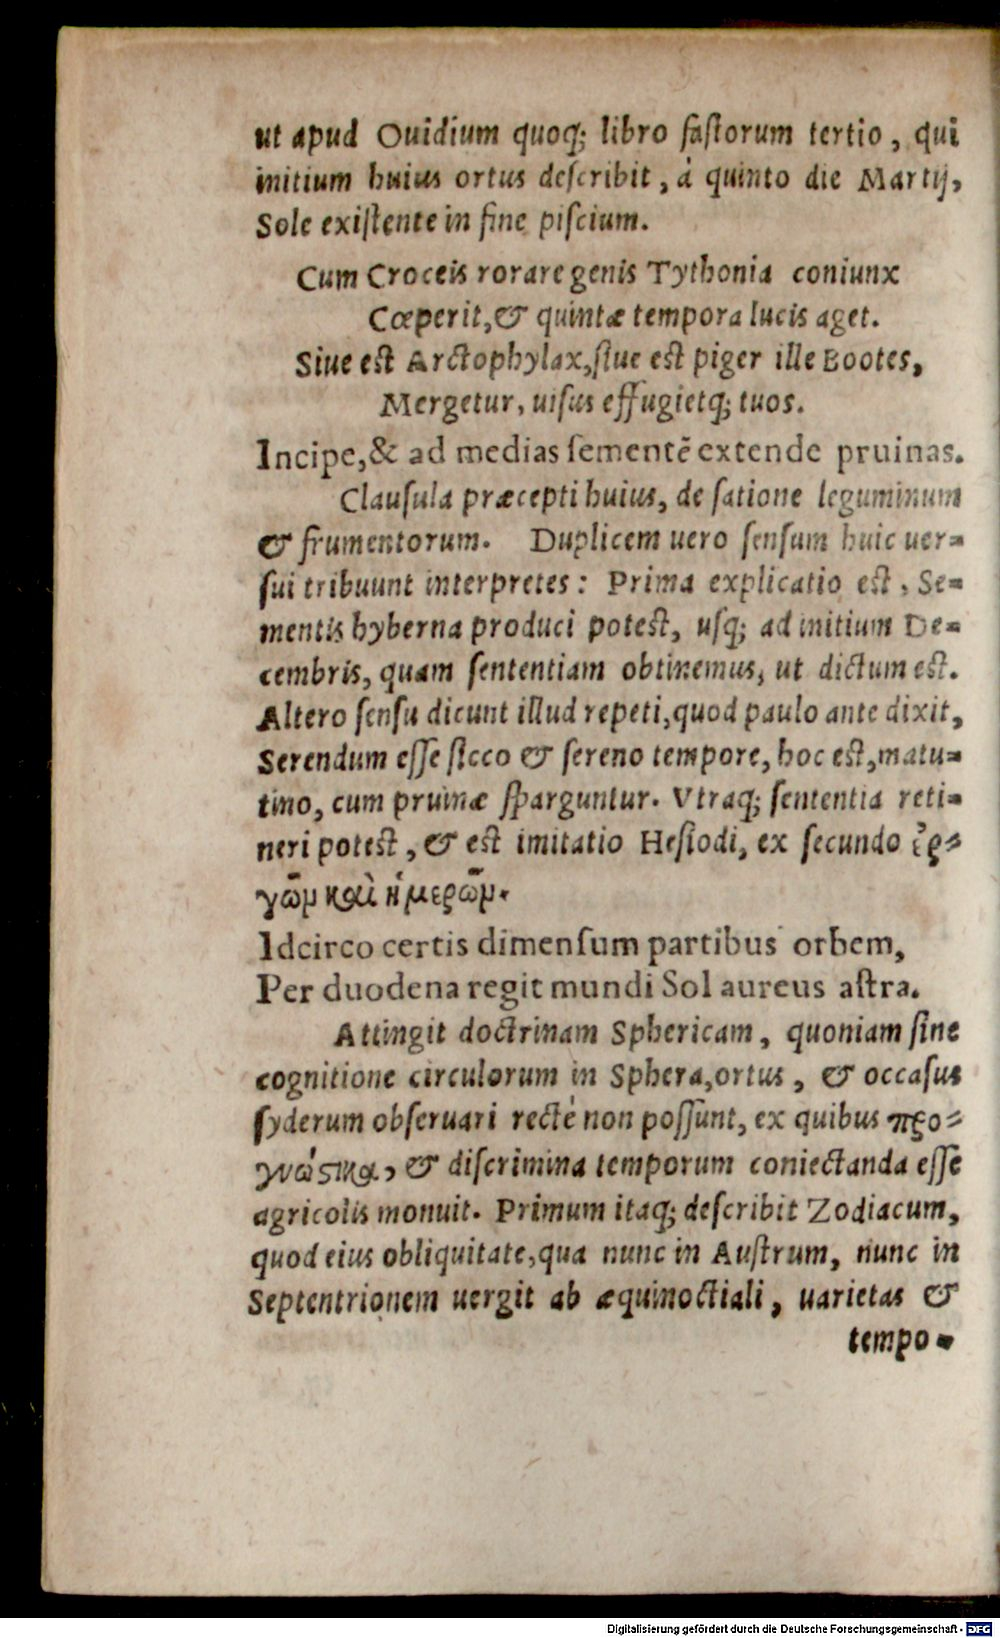 ut apud Ouidium quoq; libro fastorum tertio, qui
initium huius ortus describit, à quinto die Martij,
Sole existente in fine piscium.
Cum Croceis rorare genis Tythonia coniunx
Cœperit, & quintæ tempora lucis aget.
Siue est Arctophylax, siue est piger ille Bootes,
Mergetur, uisus effugietq; tuos.
Incipe, & ad medias sementē extende pruinas.
Clausula præcepti huius, de satione leguminum
& frumentorum. Duplicem uero sensum huic uer-
sui tribuunt interpretes: Prima explicatio est, Se-
mentis hyberna produci potest, usq; ad initium De-
cembris, quam sententiam obtinemus, ut dictum est.
Altero sensu dicunt illud repeti, quod paulo ante dixit,
Serendum esse sicco & sereno tempore, hoc est, matu-
tino, cum pruinæ sparguntur. Vtraq; sententia reti-
neri potest, & est imitatio Hesiodi, ex secundo ἔρ-
γῶμ καὶ ἡμερῶμ.
Idcirco certis dimensum partibus orbem,
Per duodena regit mundi Sol aureus astra.
Attingit doctrinam Sphericam, quoniam sine
cognitione circulorum in Sphera, ortus, & occasus
syderum obseruari rectè non possunt, ex quibus προ-
γνώστικα, & discrimina temporum coniectanda esse
agricolis monuit. Primum itaq; describit Zodiacum,
quod eius obliquitate, qua nunc in Austrum, nunc in
Septentrionem uergit ab æquinoctiali, uarietas &
tempo-
Digitalisierung gefördert durch die Deutsche Forschungsgemeinschaft - DFG